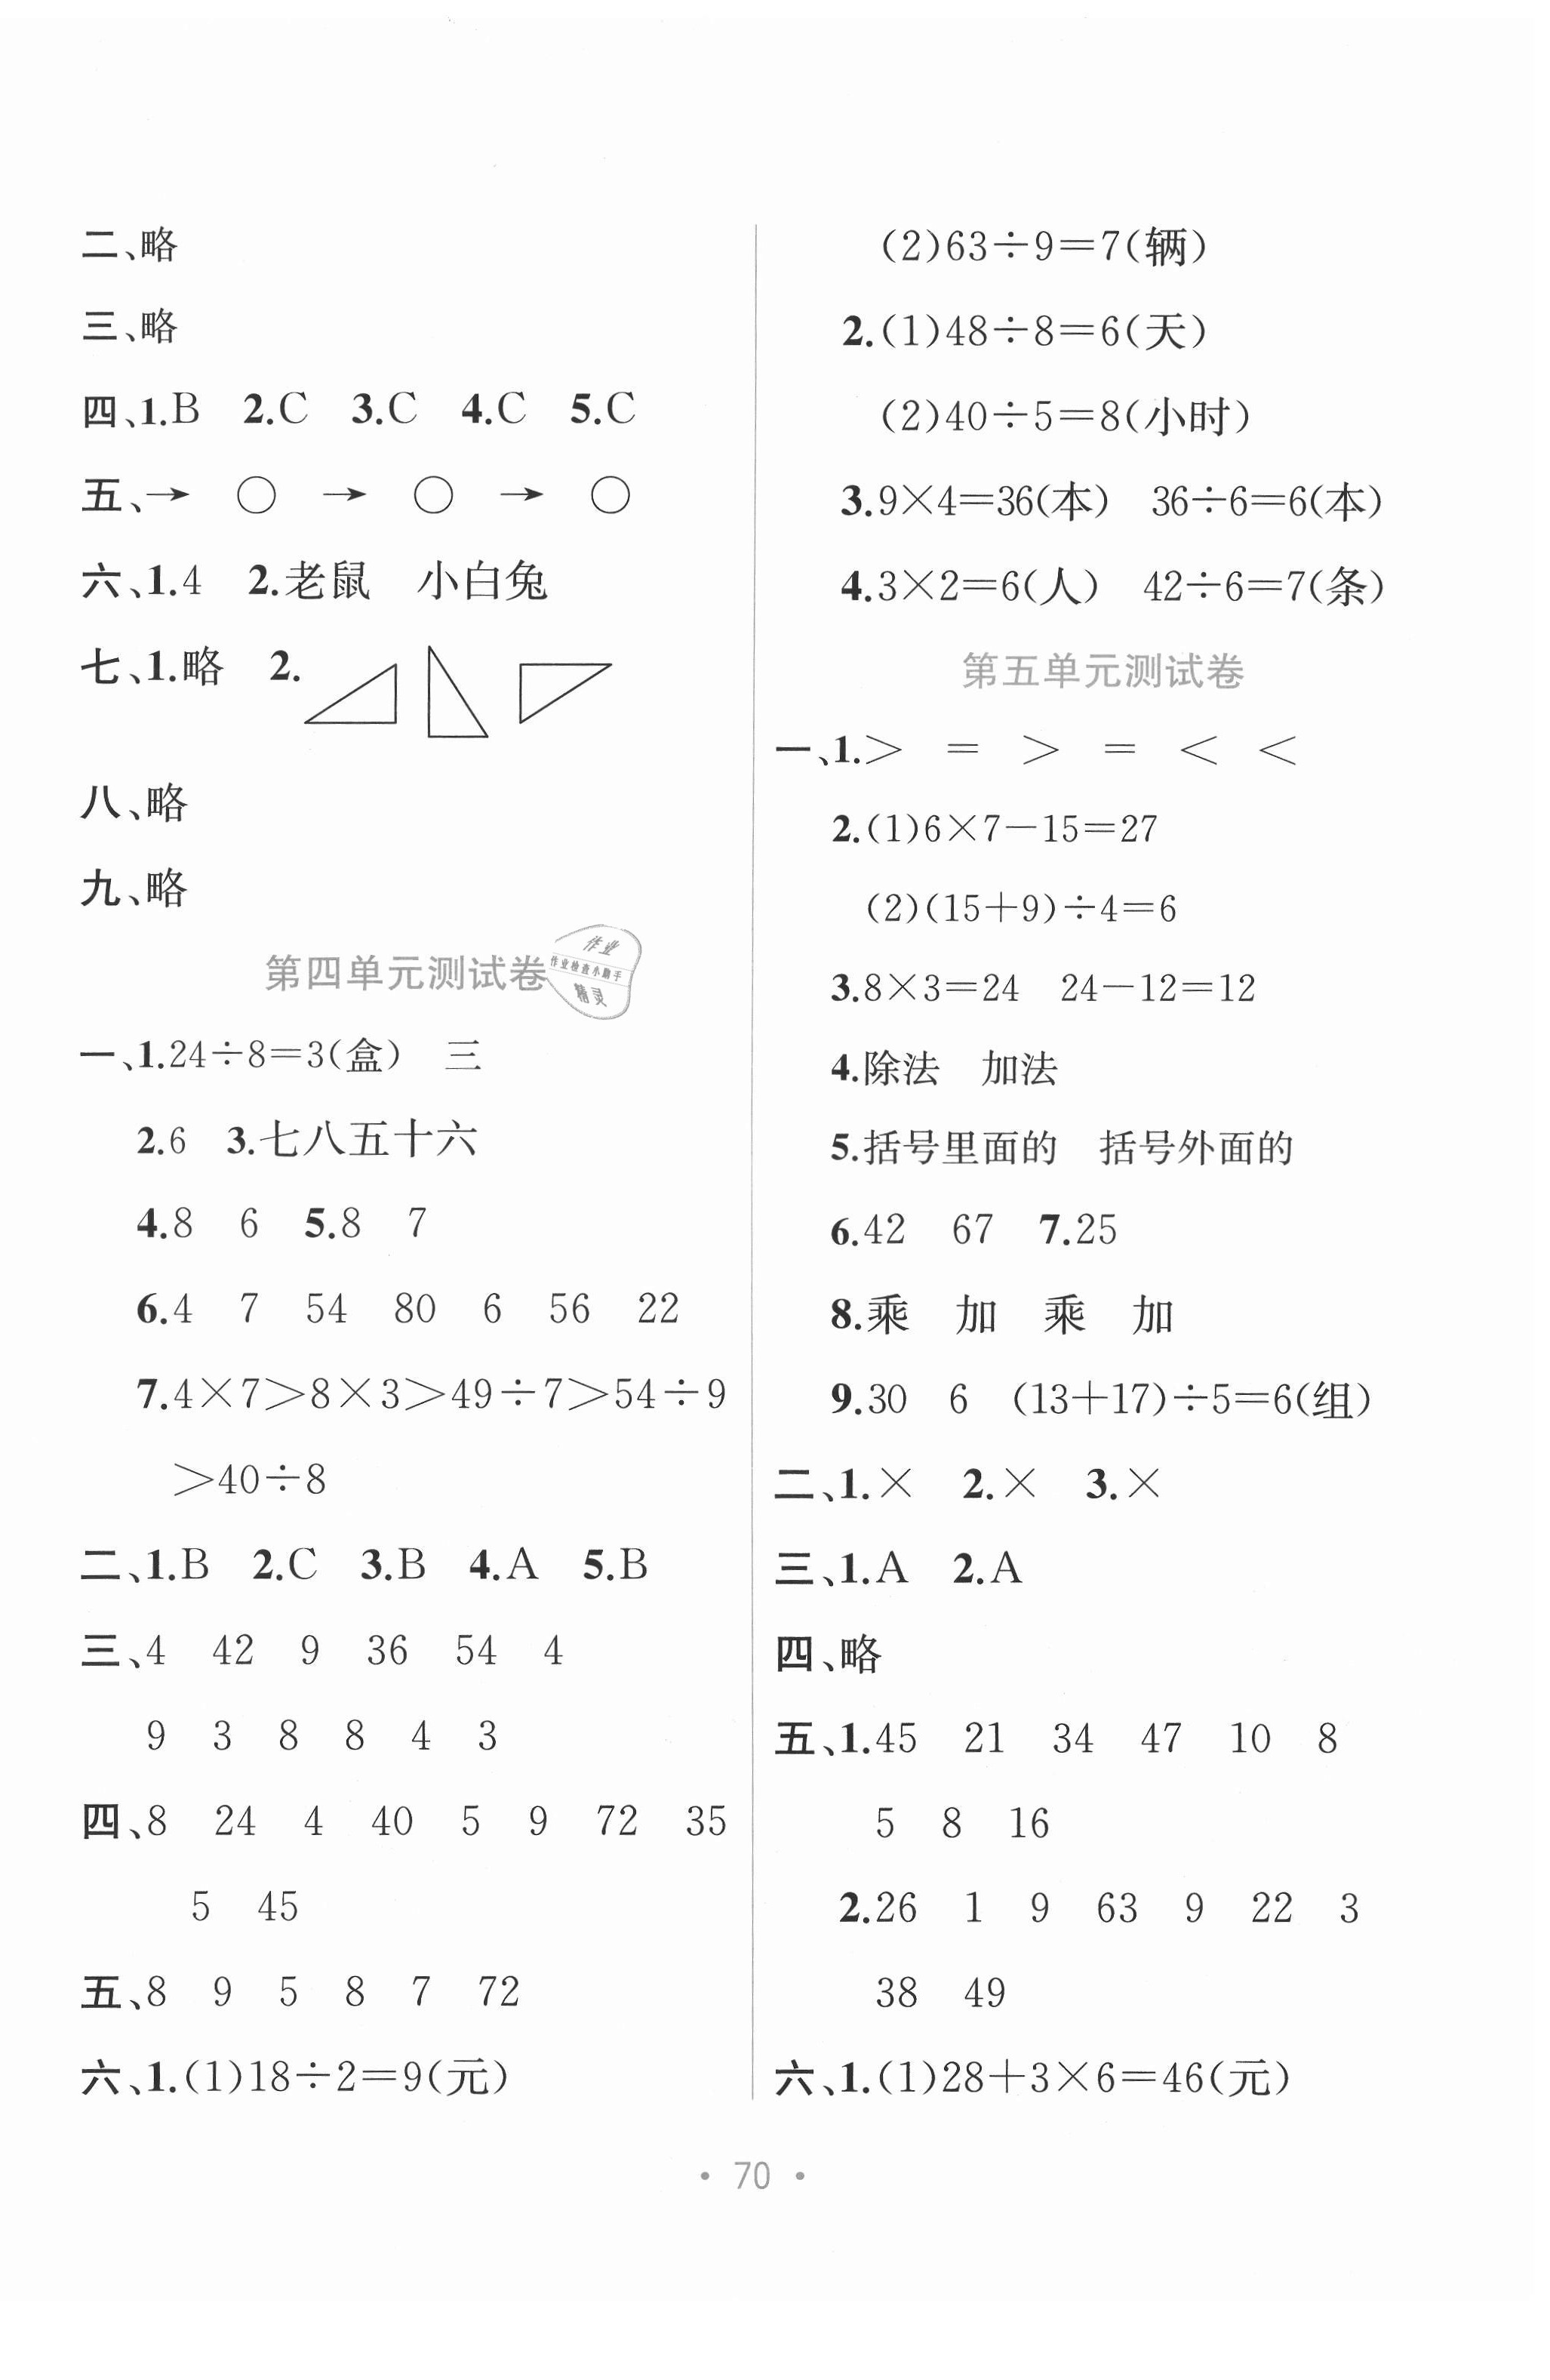 二、略
三、略
四、1.B 2.C 3.C 4.C 5.C
五、→ ○ → ○ → ○
六、1.4 2.老鼠 小白兔
七、1.略 2.
八、略
九、略
第四单元测试卷
作业
作业检查小助手
精灵
一、1.24÷8=3(盒) 三
2.6 3.七八五十六
4.8 6 5.8 7
6.4 7 54 80 6 56 22
7.4×7>8×3>49÷7>54÷9
>40÷8
二、1.B 2.C 3.B 4.A 5.B
三、4 42 9 36 54 4
9 3 8 8 4 3
四、8 24 4 40 5 9 72 35
5 45
五、8 9 5 8 7 72
六、1.(1)18÷2=9(元)
(2)63÷9=7(辆)
2.(1)48÷8=6(天)
(2)40÷5=8(小时)
3.9×4=36(本) 36÷6=6(本)
4.3×2=6(人) 42÷6=7(条)
第五单元测试卷
一、1.> = > = < <
2.(1)6×7-15=27
(2)(15+9)÷4=6
3.8×3=24 24-12=12
4.除法 加法
5.括号里面的 括号外面的
6.42 67 7.25
8.乘 加 乘 加
9.30 6 (13+17)÷5=6(组)
二、1.× 2.× 3.×
三、1.A 2.A
四、略
五、1.45 21 34 47 10 8
5 8 16
2.26 1 9 63 9 22 3
38 49
六、1.(1)28+3×6=46(元)
· 70 ·